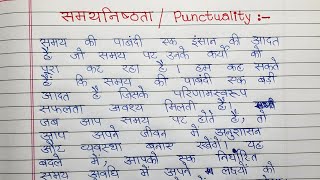 समयनिष्ठता / Punctuality :-
समय की पाबंदी एक इंसान की आदत
है जो समय पर उनके कार्यो को
पूरा कर रहा है। हम कह सकते
है कि समय की पाबंदी एक बड़ी
आदत है जिसके परिणामस्वरूप
सफलता अवश्य मिलती है।
जब आप समय पर होते है, तो
आप अपने जीवन में अनुशासन
और व्यवस्था बनाए रखेंगे यह
बदले में, आपको एक निर्धारित
समय अवधि में अपने लक्ष्यों को